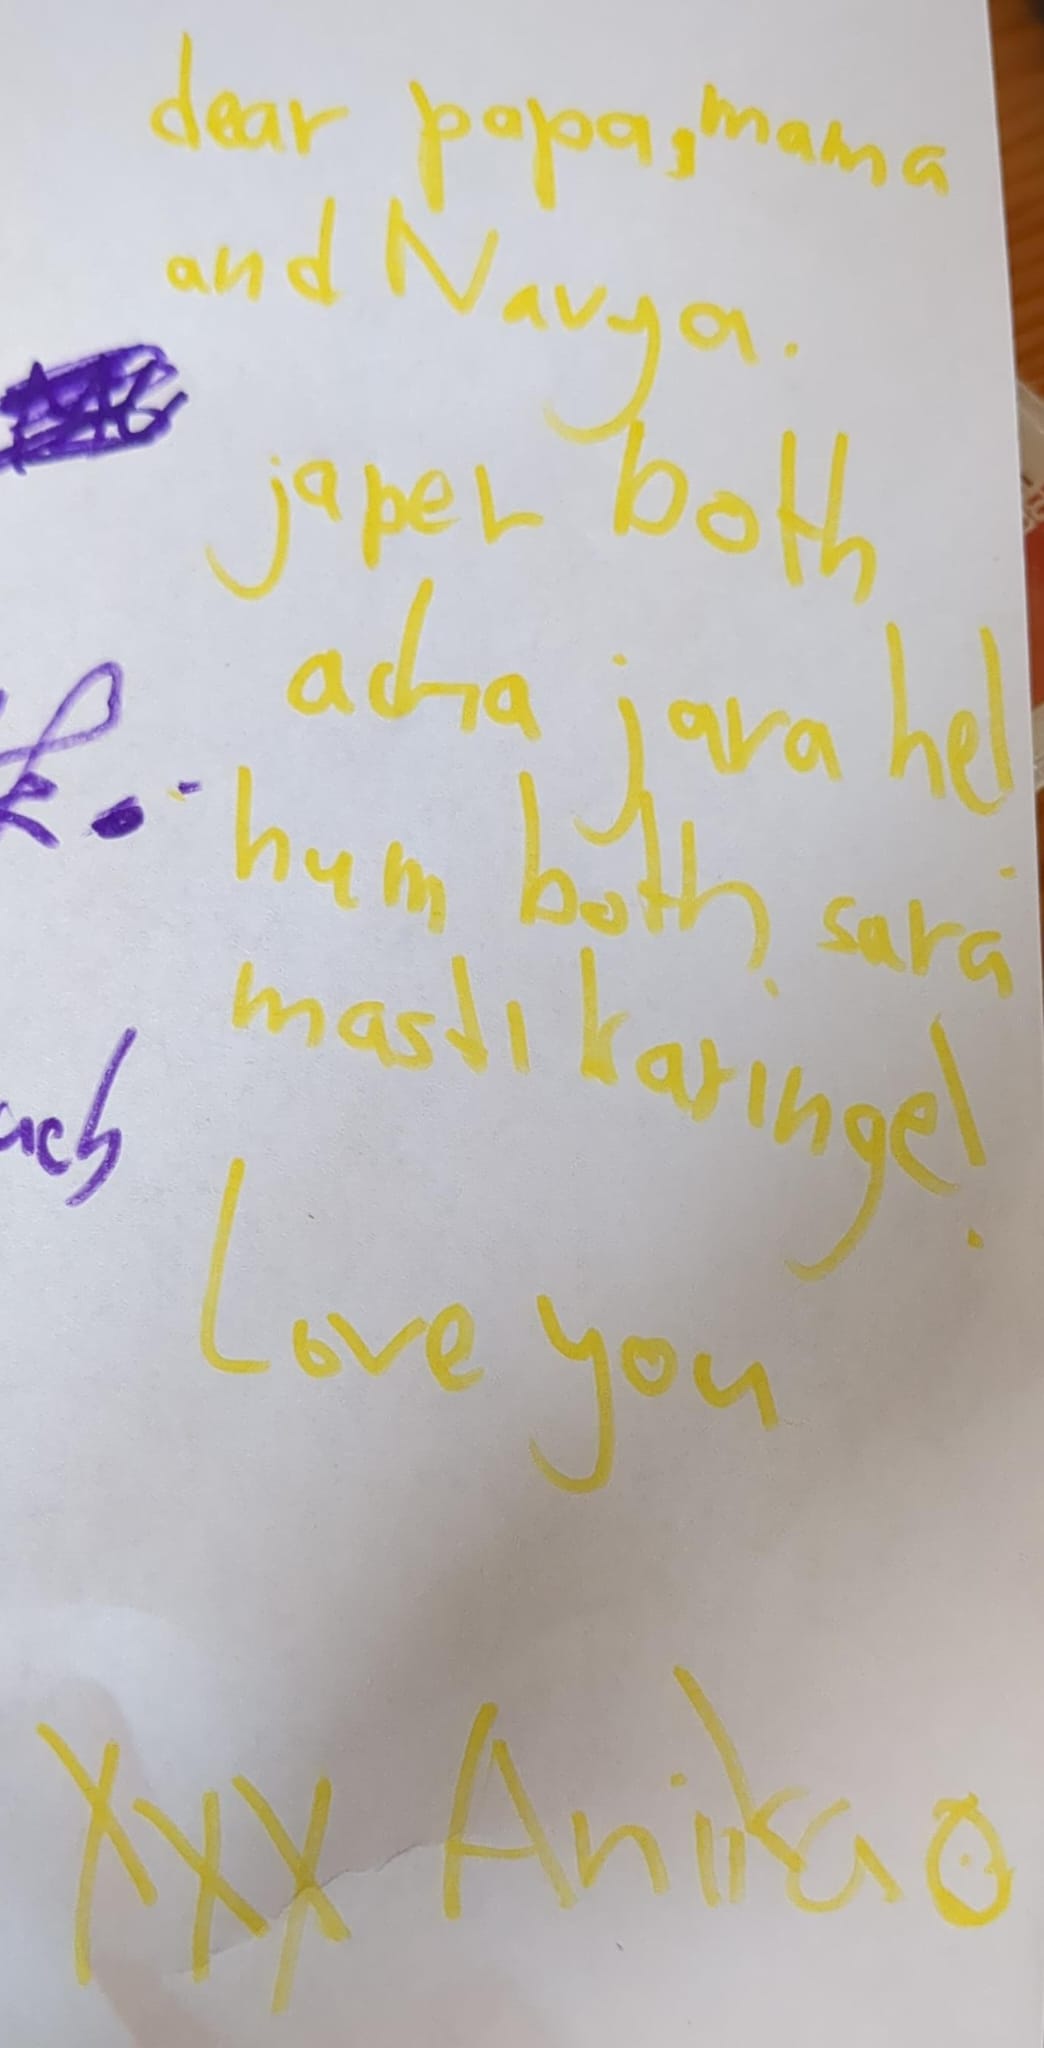 dear papa, mama
and Navya.
japer both
acha jara he!
hum both sara
masti karinge!
Love you
xxx Anika
ach